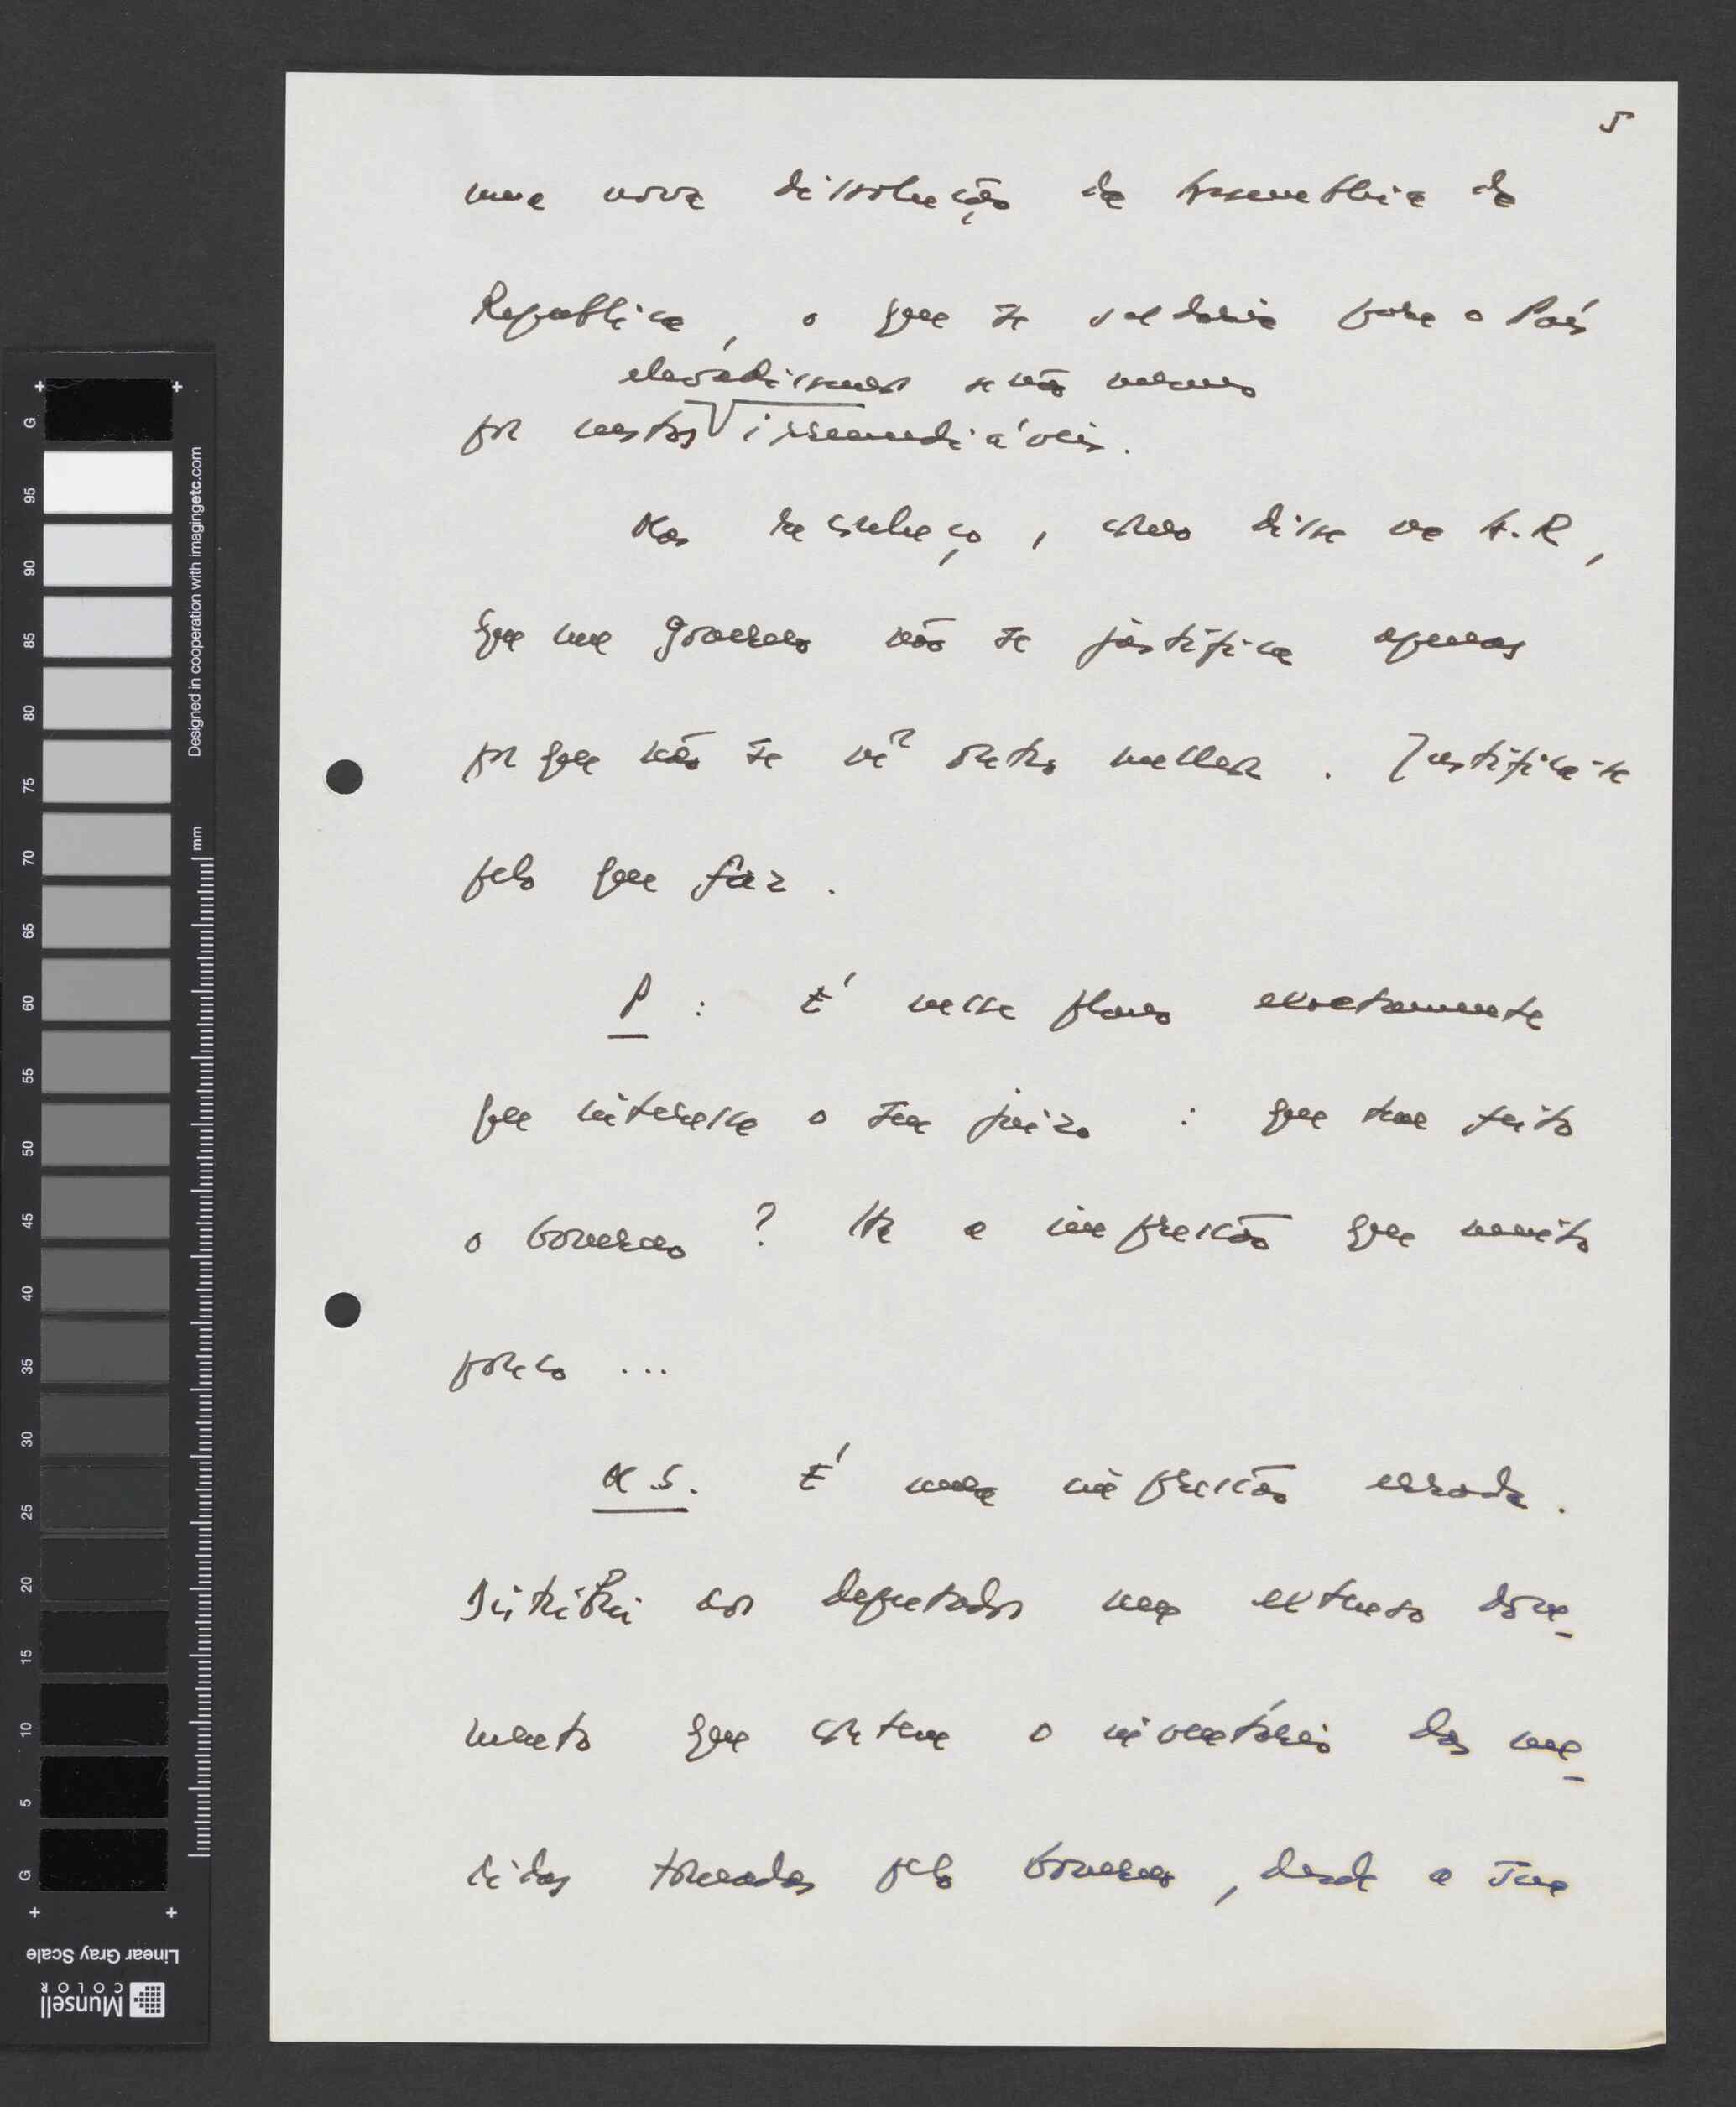 5
uma nova dissolução da Assembleia da
República, o que se saldaria para o País
elevadíssimos senão mesmo
por custos irremediáveis.
Mas reconheço, como disse na A.R,
que um governo não se justifica apenas
porque não se vê outro melhor. Justifica-se
pelo que faz.
P: É nesse plano exactamente
que interessa o seu juízo: que tem feito
o Governo? Há a impressão que muito
pouco...
M.S. É uma impressão errada.
Distribui aos deputados um extenso docu-
mento que contem o inventário das me-
didas tomadas pelo Governo, desde a sua
G
95
90
85
80
75
70
65
60
55
50
45
40
35
30
25
20
15
10
5
G
Designed in cooperation with imagingetc.com
mm
Linear Gray Scale
Munsell
COLOR